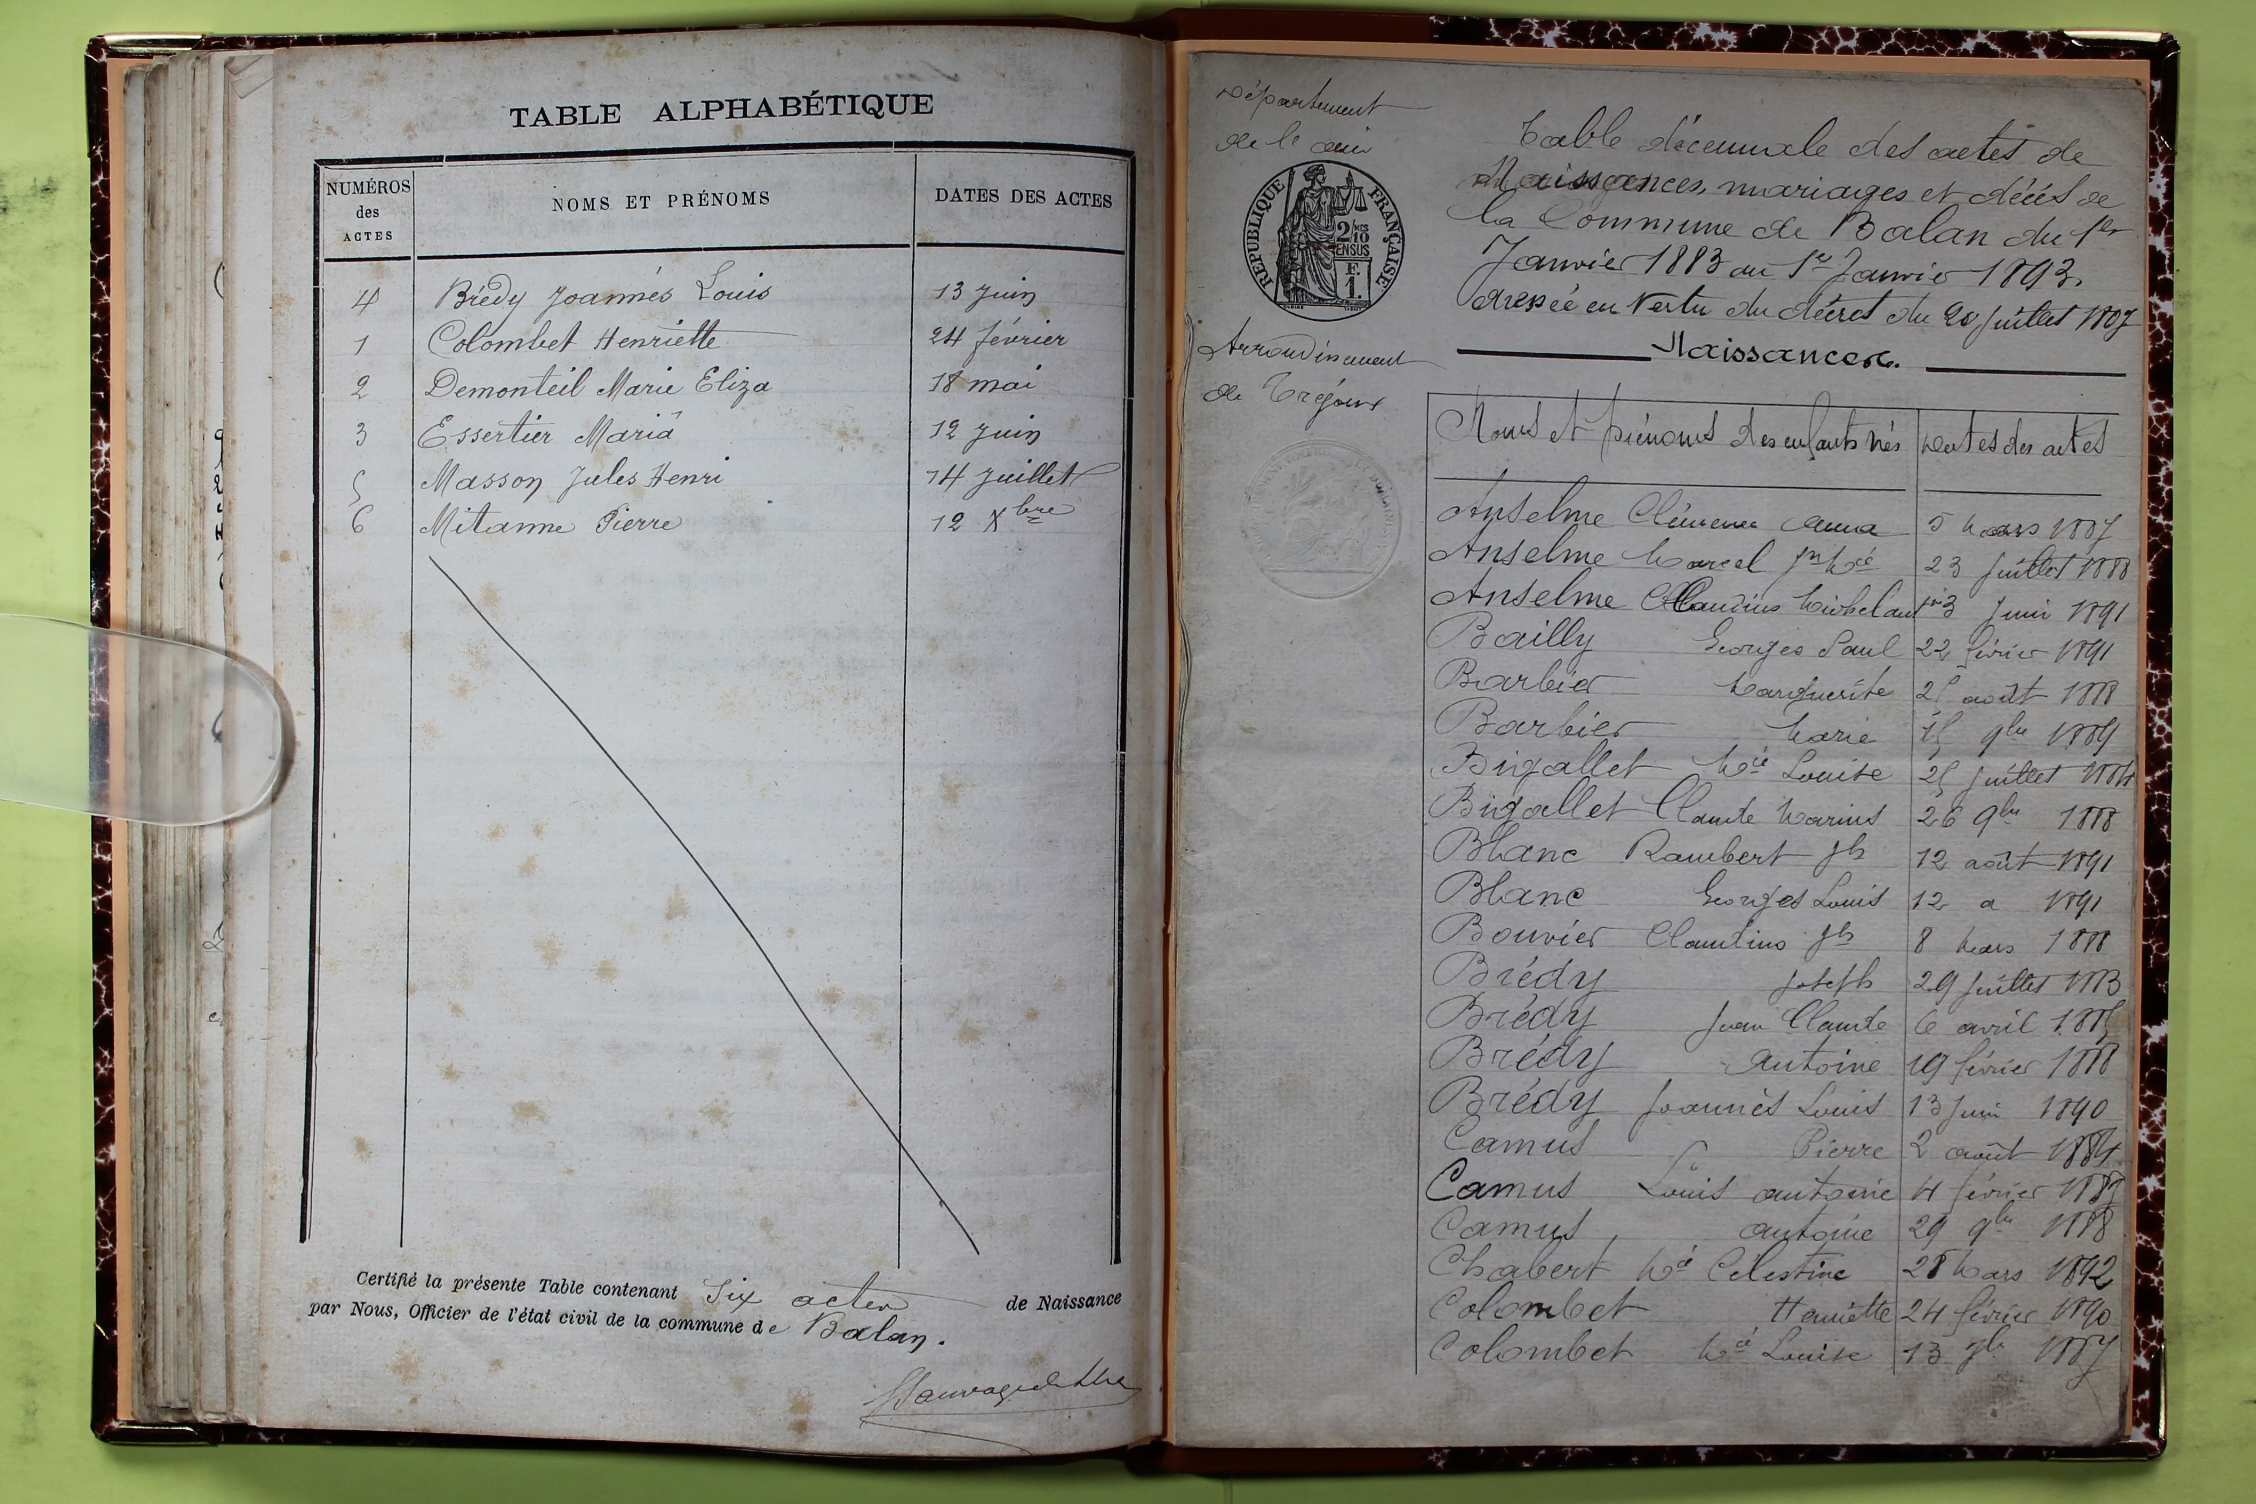 TABLE ALPHABÉTIQUE
NUMÉROS des ACTES NOMS ET PRÉNOMS DATES DES ACTES
4 Brédy Joannès Louis 13 Juin
1 Colombet Henriette 24 février
2 Demonteil Marie Eliza 18 mai
3 Essertier Maria 12 Juin
5 Masson Jules Henri 14 Juillet
6 Mitanne Pierre 12 Xbre
Certifié la présente Table contenant Six actes de Naissance
par Nous, Officier de l'état civil de la commune de Balan.
Département
de l'ain
RÉPUBLIQUE FRANÇAISE
2/10
EN SUS
F.
1.
Arrondissement
de Trévoux
Table décennale des actes de
Naissances, mariages et décès de
la Commune de Balan du 1er
Janvier 1883 au 1er Janvier 1893.
dressée en vertu du décret du 20 Juillet 1807
Naissances.
Noms et prénoms des enfants nés Dates des actes
Anselme Clémence Anna 5 mars 1887
Anselme Marcel Jn Mie 23 Juillet 1888
Anselme Claudius 3 Juin 1891
Bailly Georges Paul 22 février 1891
Barbier Marguerite 25 août 1888
Barbier Marie 15 9bre 1889
Bigallet Mie Louise 25 Juillet 1884
Bigallet Claude Marius 26 9bre 1888
Blanc Rambert Jh 12 août 1891
Blanc Georges Louis 12 a 1891
Bouvier Claudius Jh 8 mars 1888
Brédy Joseph 29 Juillet 1883
Brédy Jean Claude 6 avril 1885
Brédy Antoine 19 février 1888
Brédy Joannès Louis 13 Juin 1890
Camus Pierre 2 août 1884
Camus Louis antoine 4 février 1887
Camus antoine 29 9bre 1888
Chabert Mie Célestine 28 Mars 1892
Colombet Henriette 24 février 1890
Colombet Mie Louise 13 1887